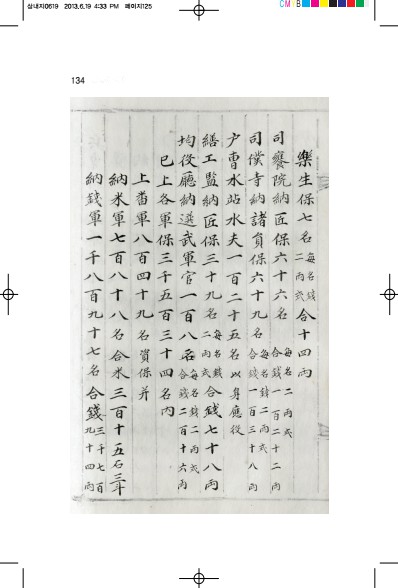 심내지0619 2013.6.19 4:33 PM 페이지125
CM B
134
樂生保七名 每名錢二兩式 合十四兩
司饔院納匠保六十六名 每名二兩式 合錢一百二十二兩
司僕寺納諸員保六十九名 每名錢二兩式 合錢一百三十八兩
戶曹水站水夫一百二十五名以身應役
繕工監納匠保三十九名 每名錢二兩式 合錢七十八兩
均役廳納選武軍官一百八名 每名錢二兩式 合錢二百十六兩
已上各軍保三千五百三十四名內
上番軍八百四十九名資保并
納米軍七百八十八名合米三百十五石三斗
納錢軍一千八百九十七名 合錢三千七百九十四兩